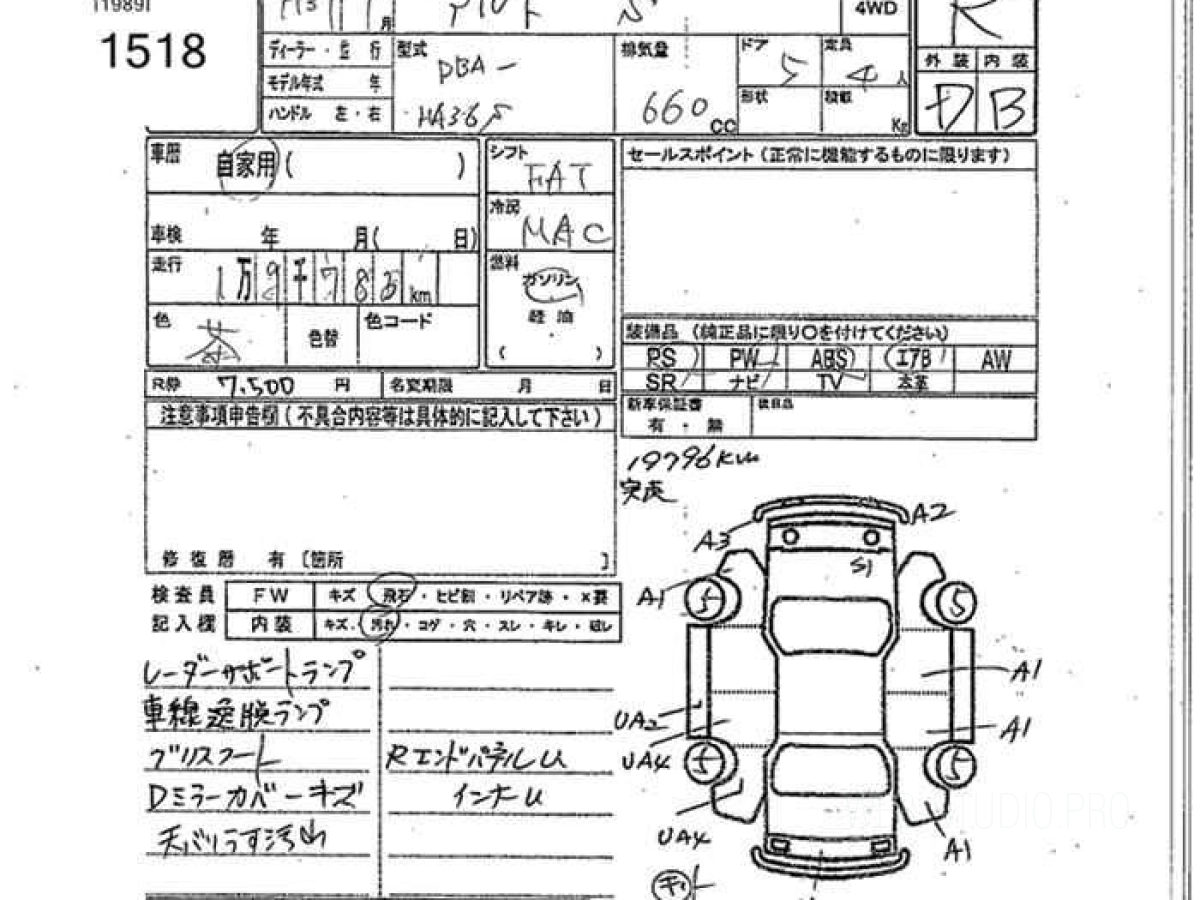 [1989]
1518
月
4WD
R
ディーラー・並 行
型式
DBA -
モデル年式 年
ハンドル 左・右
HA36S
排気量
660 cc
ドア
5
定員
4 人
形状
積載
Kg
外装 内装
D B
車歴
自家用 ( )
シフト
FAT
セールスポイント (正常に機能するものに限ります)
車検 年 月( 日)
冷房
MAC
走行
1万9千785km
燃料
ガソリン
軽 油
( )
色
茶
色替
色コード
装備品 (純正品に限り○を付けてください)
PS PW ABS エアB AW
SR ナビ TV 本革
R券 7,500 円
名変期限 月 日
新車保証書
有 ・ 無
後日品
注意事項申告欄 ( 不具合内容等は具体的に記入して下さい )
19796km
実走
修復歴 有 [箇所 ]
検査員
記入欄
FW
キズ・飛石・ヒビ割・リペア跡・×要
内装
キズ・汚れ・コゲ・穴・スレ・キレ・破レ
レーダーサポートランプ
車線逸脱ランプ
グリスフート
Rエンドパネル U
Dミラーカバーキズ
インナーU
天バリうす汚
A3
A2
S1
A1
5
5
A1
A1
UA2
UA4
5
5
UA4
A1
STUDIO.PRO